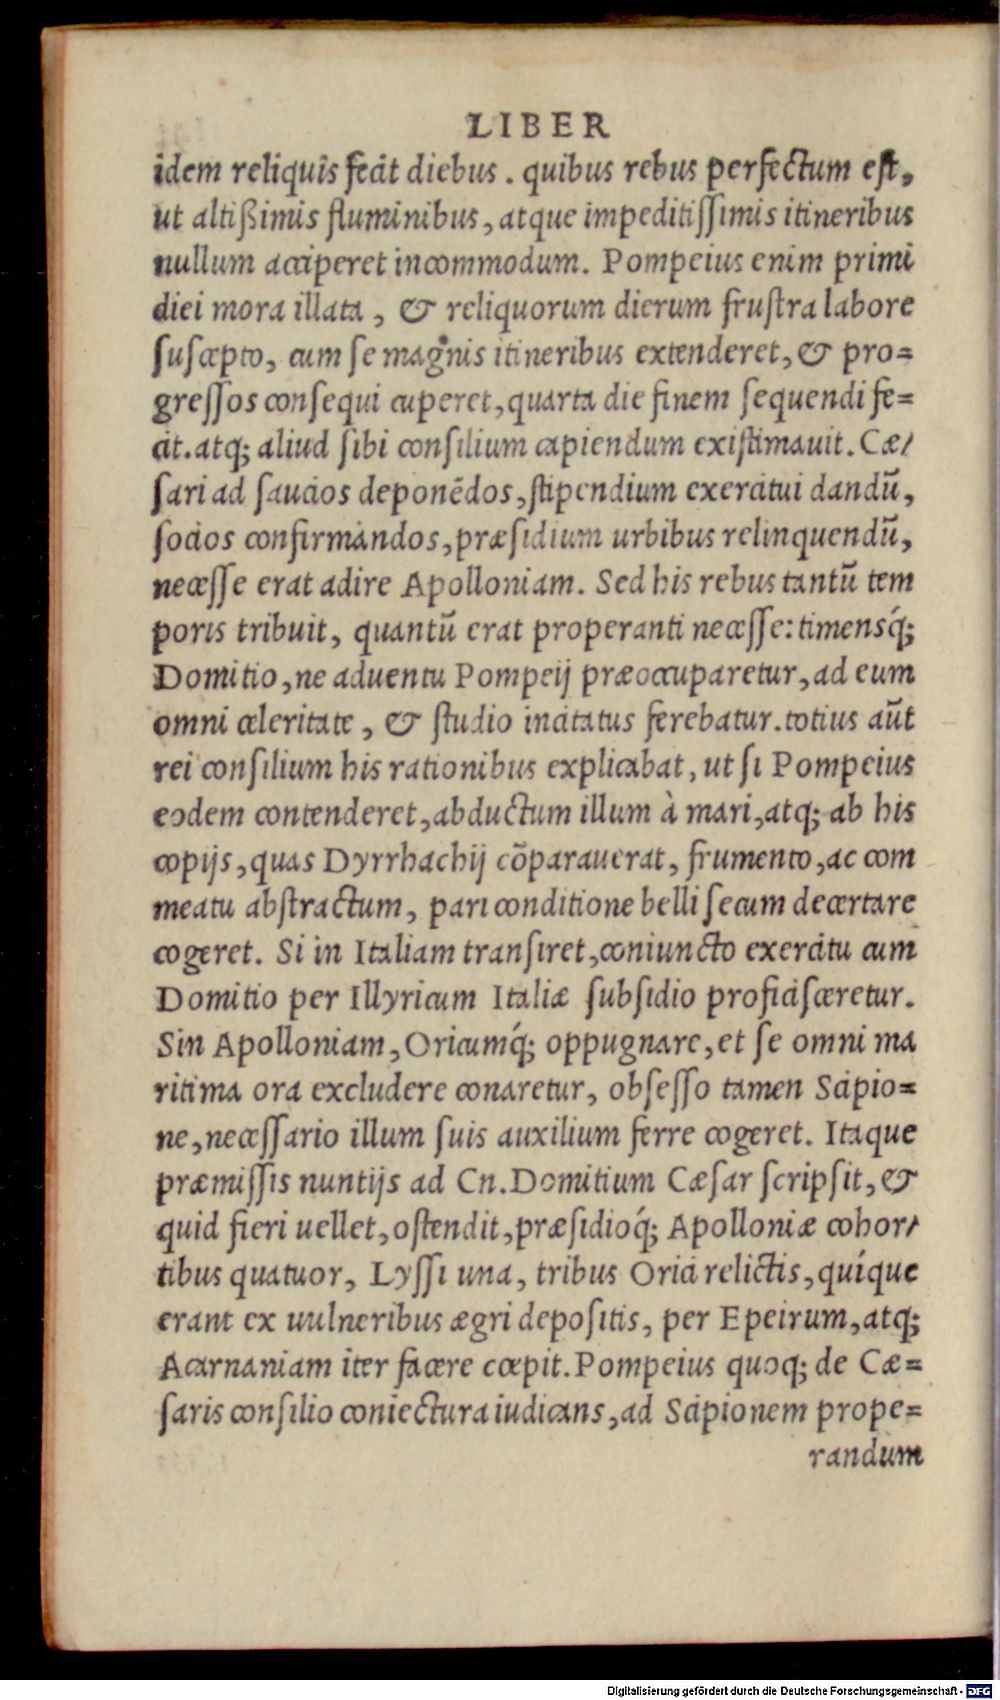 LIBER
idem reliquis fecit diebus. quibus rebus perfectum est,
ut altißimis fluminibus, atque impeditissimis itineribus
nullum acciperet incommodum. Pompeius enim primi
diei mora illata, & reliquorum dierum frustra labore
suscepto, cum se magnis itineribus extenderet, & pro=
gressos consequi cuperet, quarta die finem sequendi fe=
cit. atq; aliud sibi consilium capiendum existimauit. Cæ/
sari ad saucios deponēdos, stipendium exercitui dandū,
socios confirmandos, præsidium urbibus relinquendū,
necesse erat adire Apolloniam. Sed his rebus tantū tem
poris tribuit, quantū erat properanti necesse: timensq́;
Domitio, ne aduentu Pompeij præoccuparetur, ad eum
omni celeritate, & studio incitatus ferebatur. totius aūt
rei consilium his rationibus explicabat, ut si Pompeius
eodem contenderet, abductum illum à mari, atq; ab his
copijs, quas Dyrrhachij cōparauerat, frumento, ac com
meatu abstractum, pari conditione belli secum decertare
cogeret. Si in Italiam transiret, coniuncto exercitu cum
Domitio per Illyricum Italiæ subsidio proficisceretur.
Sin Apolloniam, Oricumq́; oppugnare, et se omni ma
ritima ora excludere conaretur, obsesso tamen Scipio=
ne, necessario illum suis auxilium ferre cogeret. Itaque
præmissis nuntijs ad Cn. Domitium Cæsar scripsit, &
quid fieri uellet, ostendit, præsidioq́; Apolloniæ cohor/
tibus quatuor, Lyssi una, tribus Orici relictis, quíque
erant ex uulneribus ægri depositis, per Epeirum, atq;
Acarnaniam iter facere cœpit. Pompeius quoq; de Cæ=
saris consilio coniectura iudicans, ad Scipionem prope=
randum
Digitalisierung gefördert durch die Deutsche Forschungsgemeinschaft - DFG